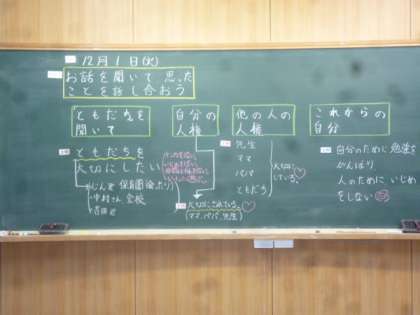 12月1日(火)
お話を聞いて思った
ことを話し合おう
ともだちを
聞いて
自分の
人権
他の人の
人権
これからの
自分
ともだちを
大切にしたい
保育園
中村さん 全校
吉田
大切にされている。
(ママ、パパ、先生)
先生
ママ
パパ
ともだち
大切に
している。
自分のために 勉強を
がんばり
人のために いじめ
をしない